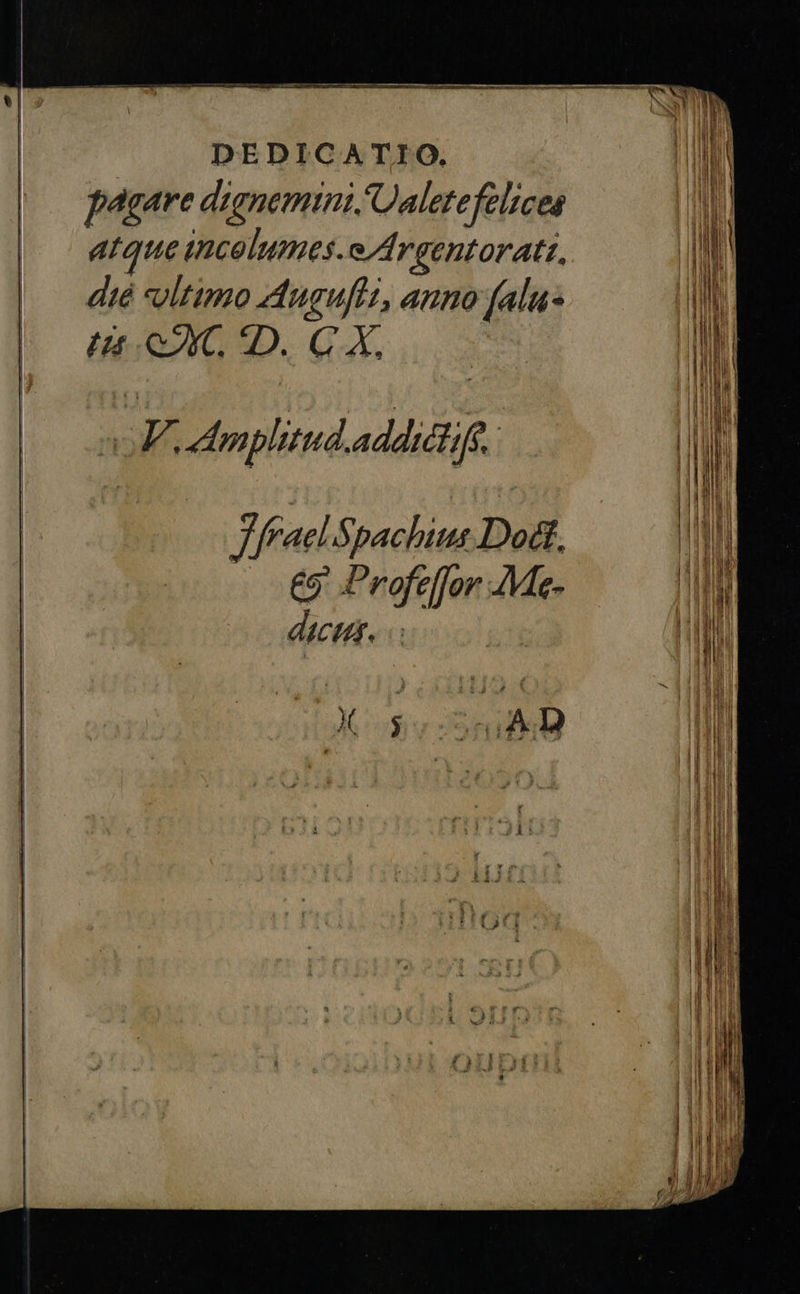 DEDICATIO.
pagare dignemini. Valete felices
atque incolumes. Argentorati,
die vltimo Augusti, anno salu-
tis M. D. C X.
V. Amplitud. addictiſſ.
Iſrael Spachius Doct.
& Profeſſor Me-
dicus.
)( 5 AD